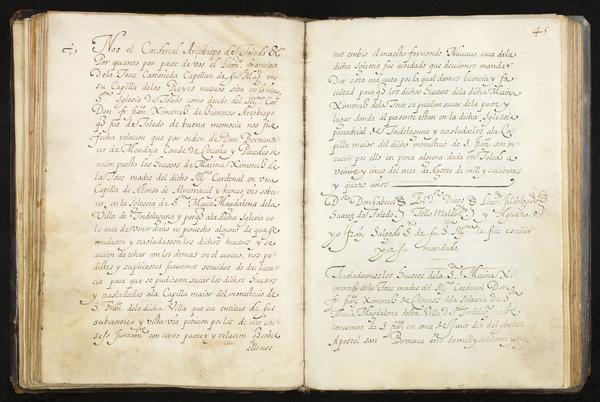 Nos el Cardenal Arçobispo de Toledo &c
Por quanto por parte de vos el licen.do francisco
dela Torre Castañeda Capellan de su Mag. en
su Capilla delos Reyes nuevos sita en la
S.ta Iglesia de Toledo como deudo del Ill.mo Car.
Don fr. fran.co Ximenez de Cisneros Arçobispo
q fue de Toledo de buena memoria nos fue
fecha relacion que por orden de Don Bernar
de Mendoça Conde de Coruña y Paredes se
avian puesto los huessos de Marina Ximenez de
la Torre madre del dicho Ill.mo Cardenal en una
Capilla de Alonso de Almonacid y henao
en la Iglesia de S.ta Maria Magdalena dela
Villa de Tordelaguna y porq ala dicha Iglesia no
le avia de venir daño ni provecho alguno de que se
mudasen y trasladasen los dichos huessos y se
avian de echar con los demas en el carnero, nos pe
distes y suplicastes fuesemos servidos de dar licen
cia para que se pudiesen sacar los dichos huessos
y trasladarlos ala Capilla maior del monesterio de
S. Fran.co dela dicha Villa que era entierro de sus
subcesores y vista vra peticion por los de nro con
sejo juntam.te con cierto parecer y relacion
45
nos embio el maestro fernando cura dela
dicha Iglesia fue acordado que deviamos mandar
dar esta nra carta por la qual damos licencia y fa
cultad para q los dichos huessos dela dicha Marina
Ximenez dela Torre se puedan sacar dela parte y
lugar donde al presente estan en la dicha Iglesia
parochial de Tordelaguna y trasladarlos ala Ca
pilla maior del dicho monesterio de S. fran.co sin in
currir por ello en pena alguna dada en Toledo a
veinte y cinco del mes de Agosto de mill y seiscientos
y quatro años
D.or Don Gabriel Suarez de Toledo El D.or Diego Tello Licen.do Hidalgo
y Aguero
yo fran.co Salgado S.rio de su S. Ill.ma la fize escrivir
por su mandado.
Trasladaronse los huessos dela S.ra Marina Xi
menez dela Torre madre del Ill.mo Cardenal Don
fr. fran.co Ximenez de Cisneros dela Iglesia de S.ta
Maria Magdalena desta Villa de Tordelaguna al
convento de S. fran.co en onze de Junio dia del glorioso
Apostol san Bernave año de mill y seiscientos y